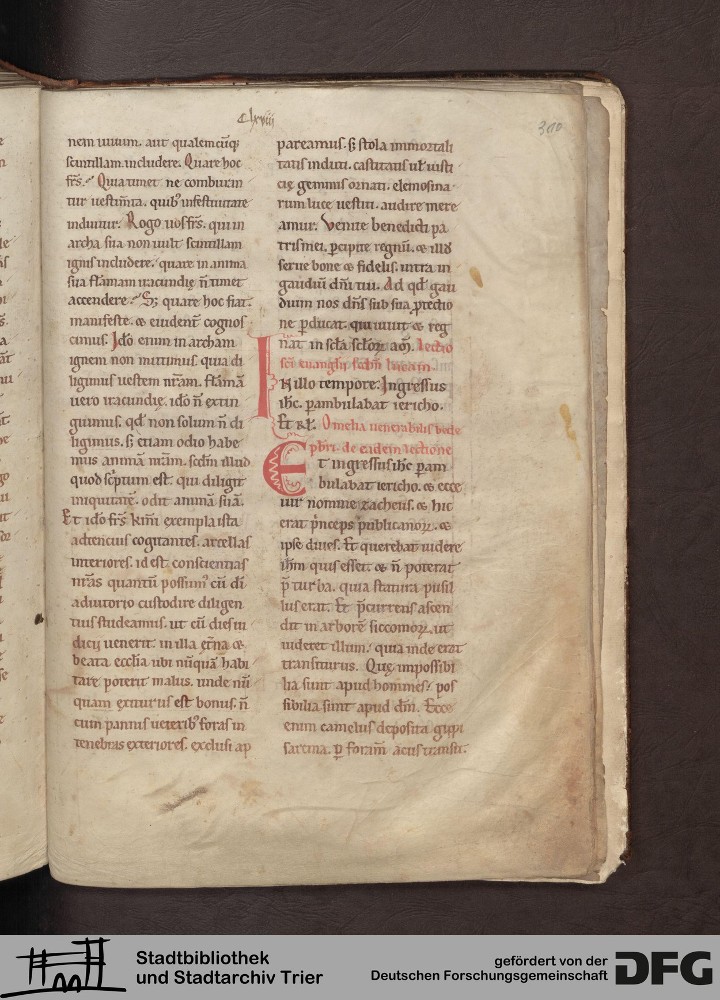 Clxviii
300
nem uiuum. aut qualemcūq;
scintillam includere. Quare hoc
fr̄s. Quia timet ne comburan
tur uestim̄ta. quib; infestiuitate
induitur. Rogo uos fr̄s. qui in
archa sua non uult scintillam
ignis includere. quare in anima
sua flāmam iracundię n̄ timet
accendere. Sꝫ quare hoc fiat.
manifeste. & euident̄ cognos
cimus. Ido enim in archam
ignem non mittimus. quia di
ligimus uestem nr̄am. flāmā
uero iracundię. ido n̄ extin
guimus. qd̄ non solum n̄ di
ligimus. s; etiam odio habe
mus animā nr̄am. scd̄m illud
quod sc̄ptum est. qui diligit
iniquitatē. odit animā suā.
Et ido fr̄s km̄i exempla ista
adtencius cogitantes. arcellas
interiores. id est conscientias
nr̄as quantū possum; cū dī
adiutorio custodire diligen
tius studeamus. ut cū dies iu
dicii uenerit in illa ęt̄na &
beata eccl̄ia ubi nūquā habi
tare poterit malus. unde nū
quam exiturus est bonus. n̄
cum pannis ueterib; foras in
tenebras exteriores. exclusi ap
pareamus. s; stola immortali
tatis induti. castitatis ul̄ iusti
cię gemmis ornati. elemosina
rum luce uestiti. audire mere
amur. Venite benedicti pa
tris mei. ꝑcipite regnū. & illd̄
serue bone & fidelis. intra in
gaudiū dn̄i tui. Ad qd̄ gau
dium nos dn̄s sub sua ꝓtectio
ne ꝑducat. qui uiuit & reg
nat in scl̄a scl̄oꝝ am̄. Lectio
sc̄i euangl̄ii scd̄m lucam.
In illo tempore. Ingressus
ih̄c. ꝑambulabat iericho.
Et rl̄. Omelia uenerabilis bede
pb̄ri. de eadem lectione
Et ingressus ih̄c ꝑam
bulabat iericho. & ecce
uir nomine zacheus. & hic
erat p̄nceps publicanoꝝ. &
ipse diues. Et querebat uidere
ih̄m quis esset. & n̄ poterat
p̄ turba. quia statura pusil
lus erat. Et p̄currens ascen
dit in arborē siccomoꝝ. ut
uideret illum. quia inde erat
transiturus. Quę impossibi
lia sunt apud homines. pos
sibilia sunt apud dm̄. Ecce
enim camelus deposita gippi
sarcina. ꝑ foram̄ acus transit.
Stadtbibliothek
und Stadtarchiv Trier
gefördert von der
Deutschen Forschungsgemeinschaft
DFG